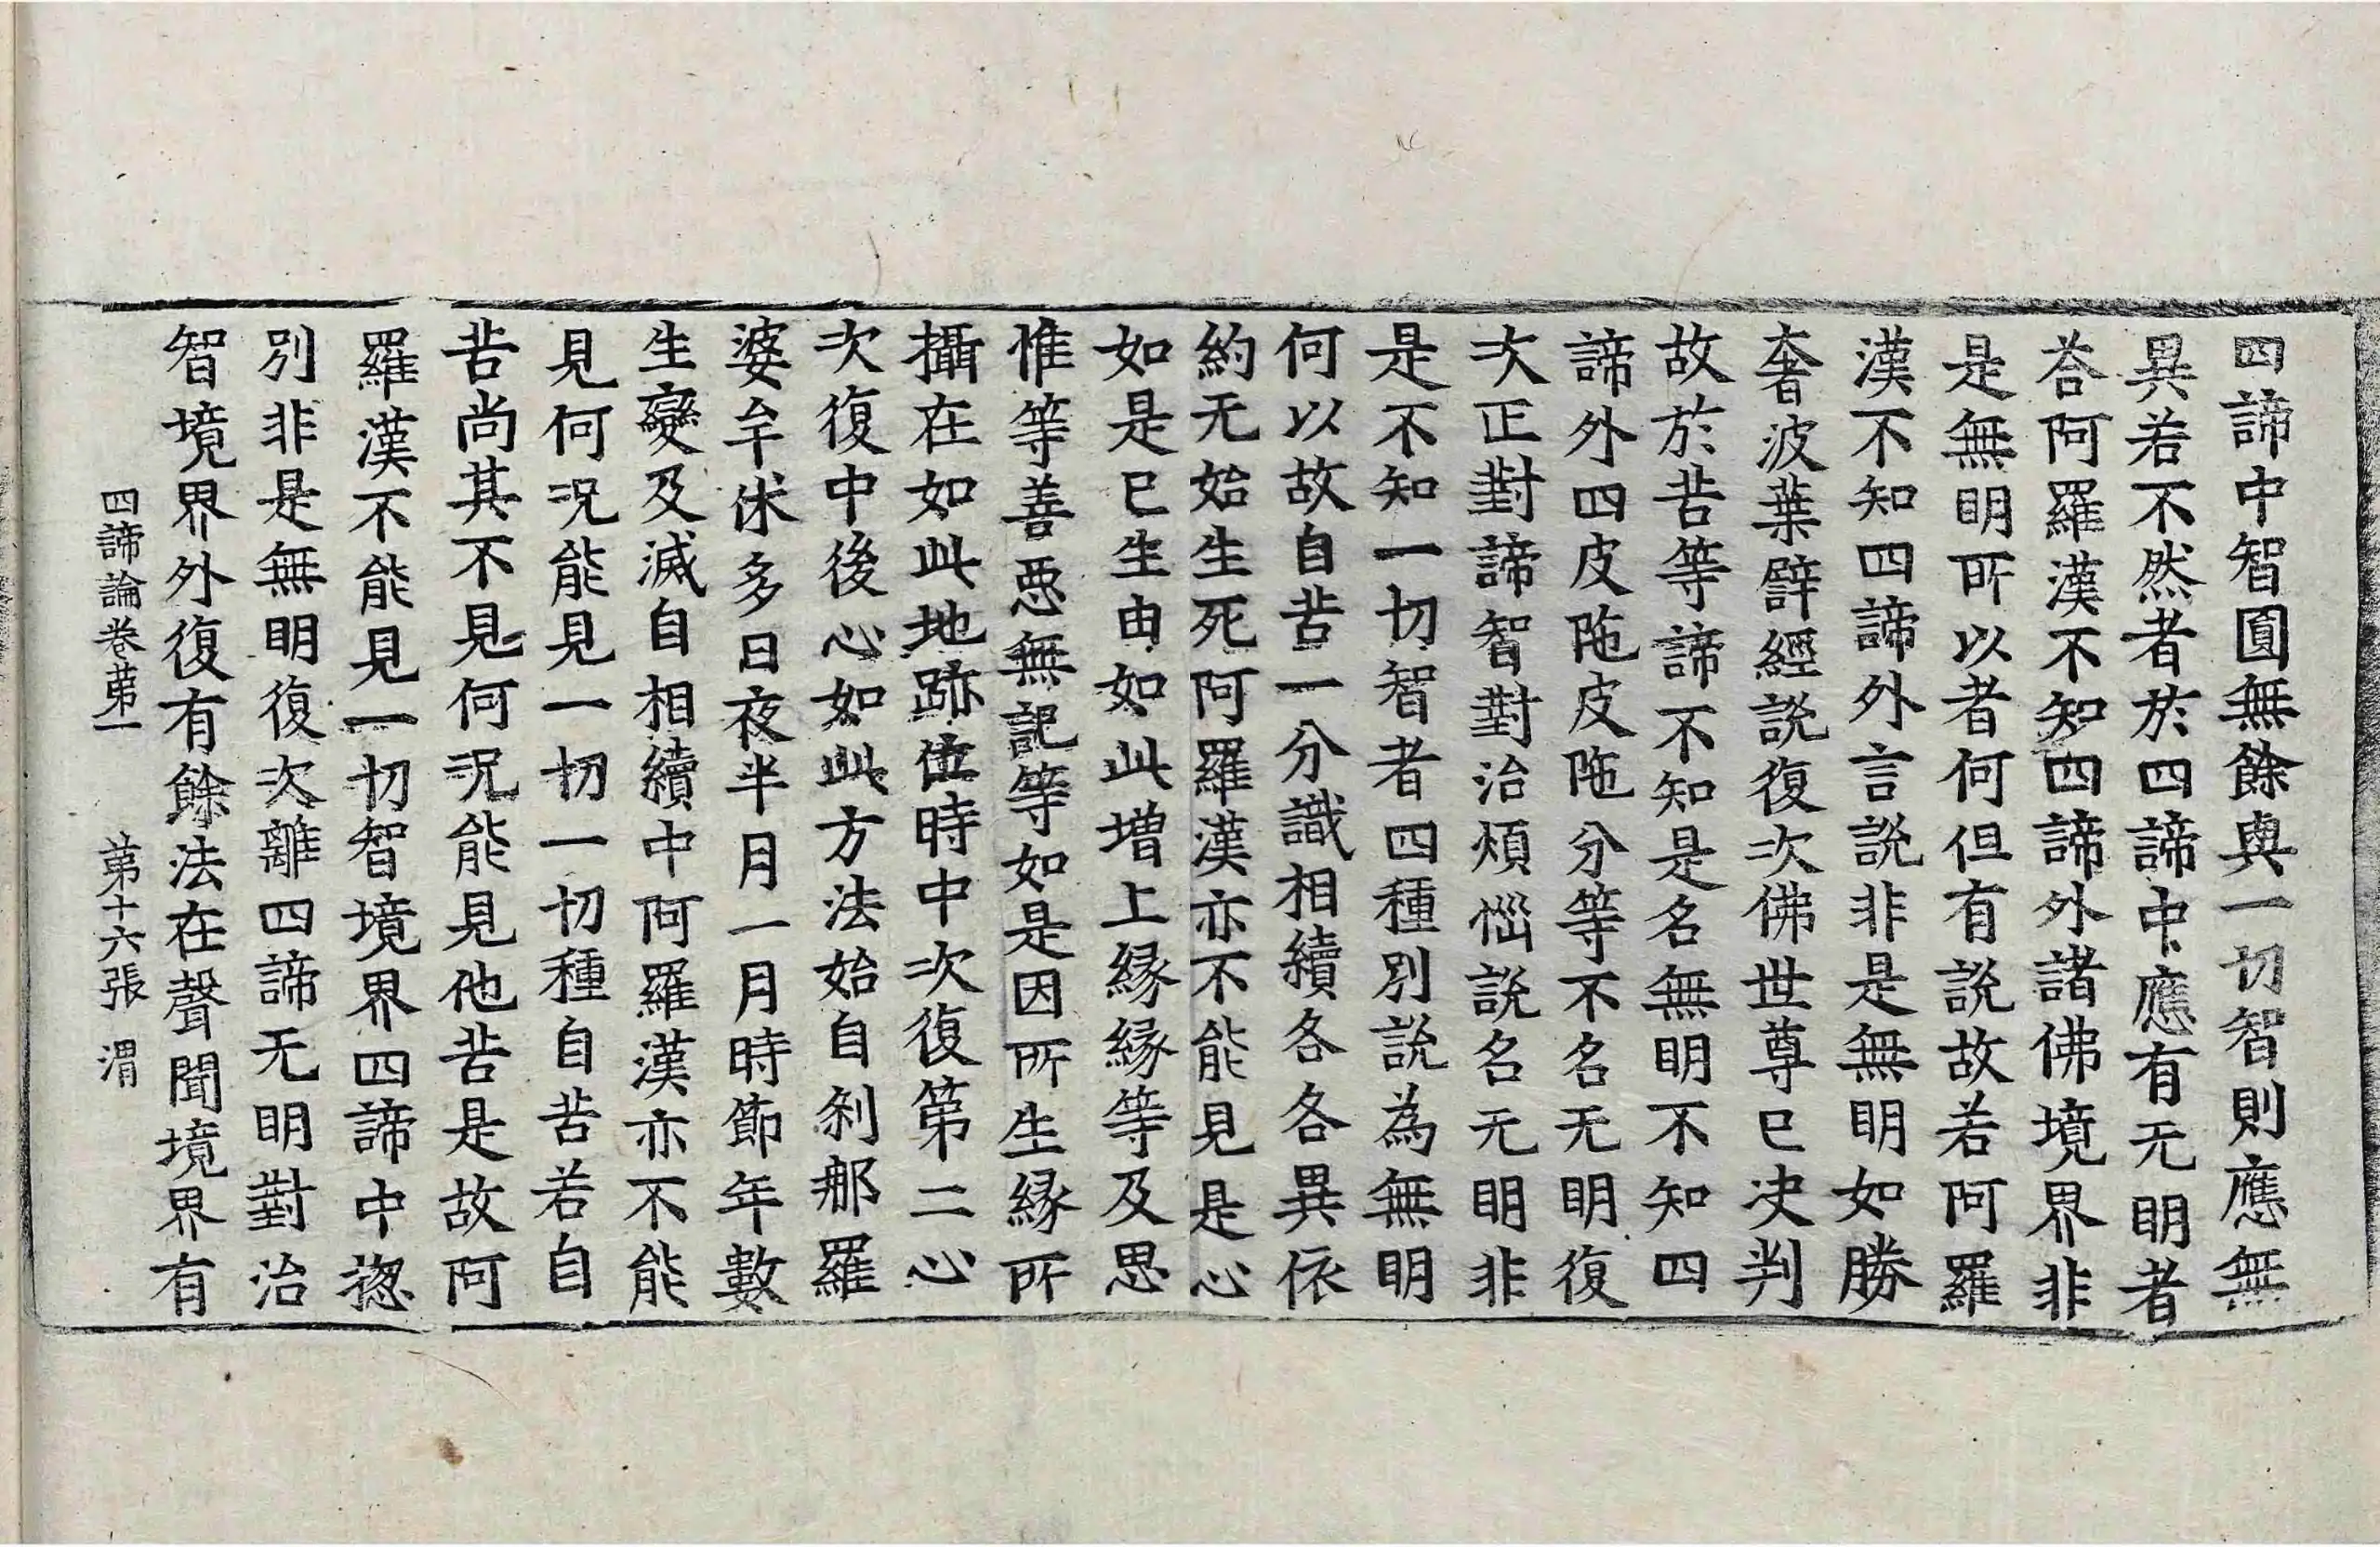 四諦中智圎無餘與一切智則應無
異若不然者於四諦中應有无明者
荅阿羅漢不知四諦外諸佛境界非
是無明所以者何但有說故若阿羅
漢不知四諦外言說非是無明如勝
奢波葉譬經說復次佛世尊已决判
故於苦等諦不知是名無明不知四
諦外四皮陁皮陁分等不名无明復
次正對諦智對治煩惱說名无明非
是不知一切智者四種別說為無明
何以故自苦一分識相續各各異依
約无始生死阿羅漢亦不能見是心
如是已生由如此增上緣緣等及思
惟等善惡無記等如是因所生緣所
攝在如此地跡位時中次復第二心
次復中後心如此方法始自剎那羅
婆牟休多日夜半月一月時節年數
生變及滅自相續中阿羅漢亦不能
見何況能見一切一切種自苦若自
苦尚其不見何況能見他苦是故阿
羅漢不能見一切智境界四諦中惣
別非是無明復次離四諦无明對治
智境界外復有餘法在聲聞境界有
四諦論卷苐一　苐十六張　渭